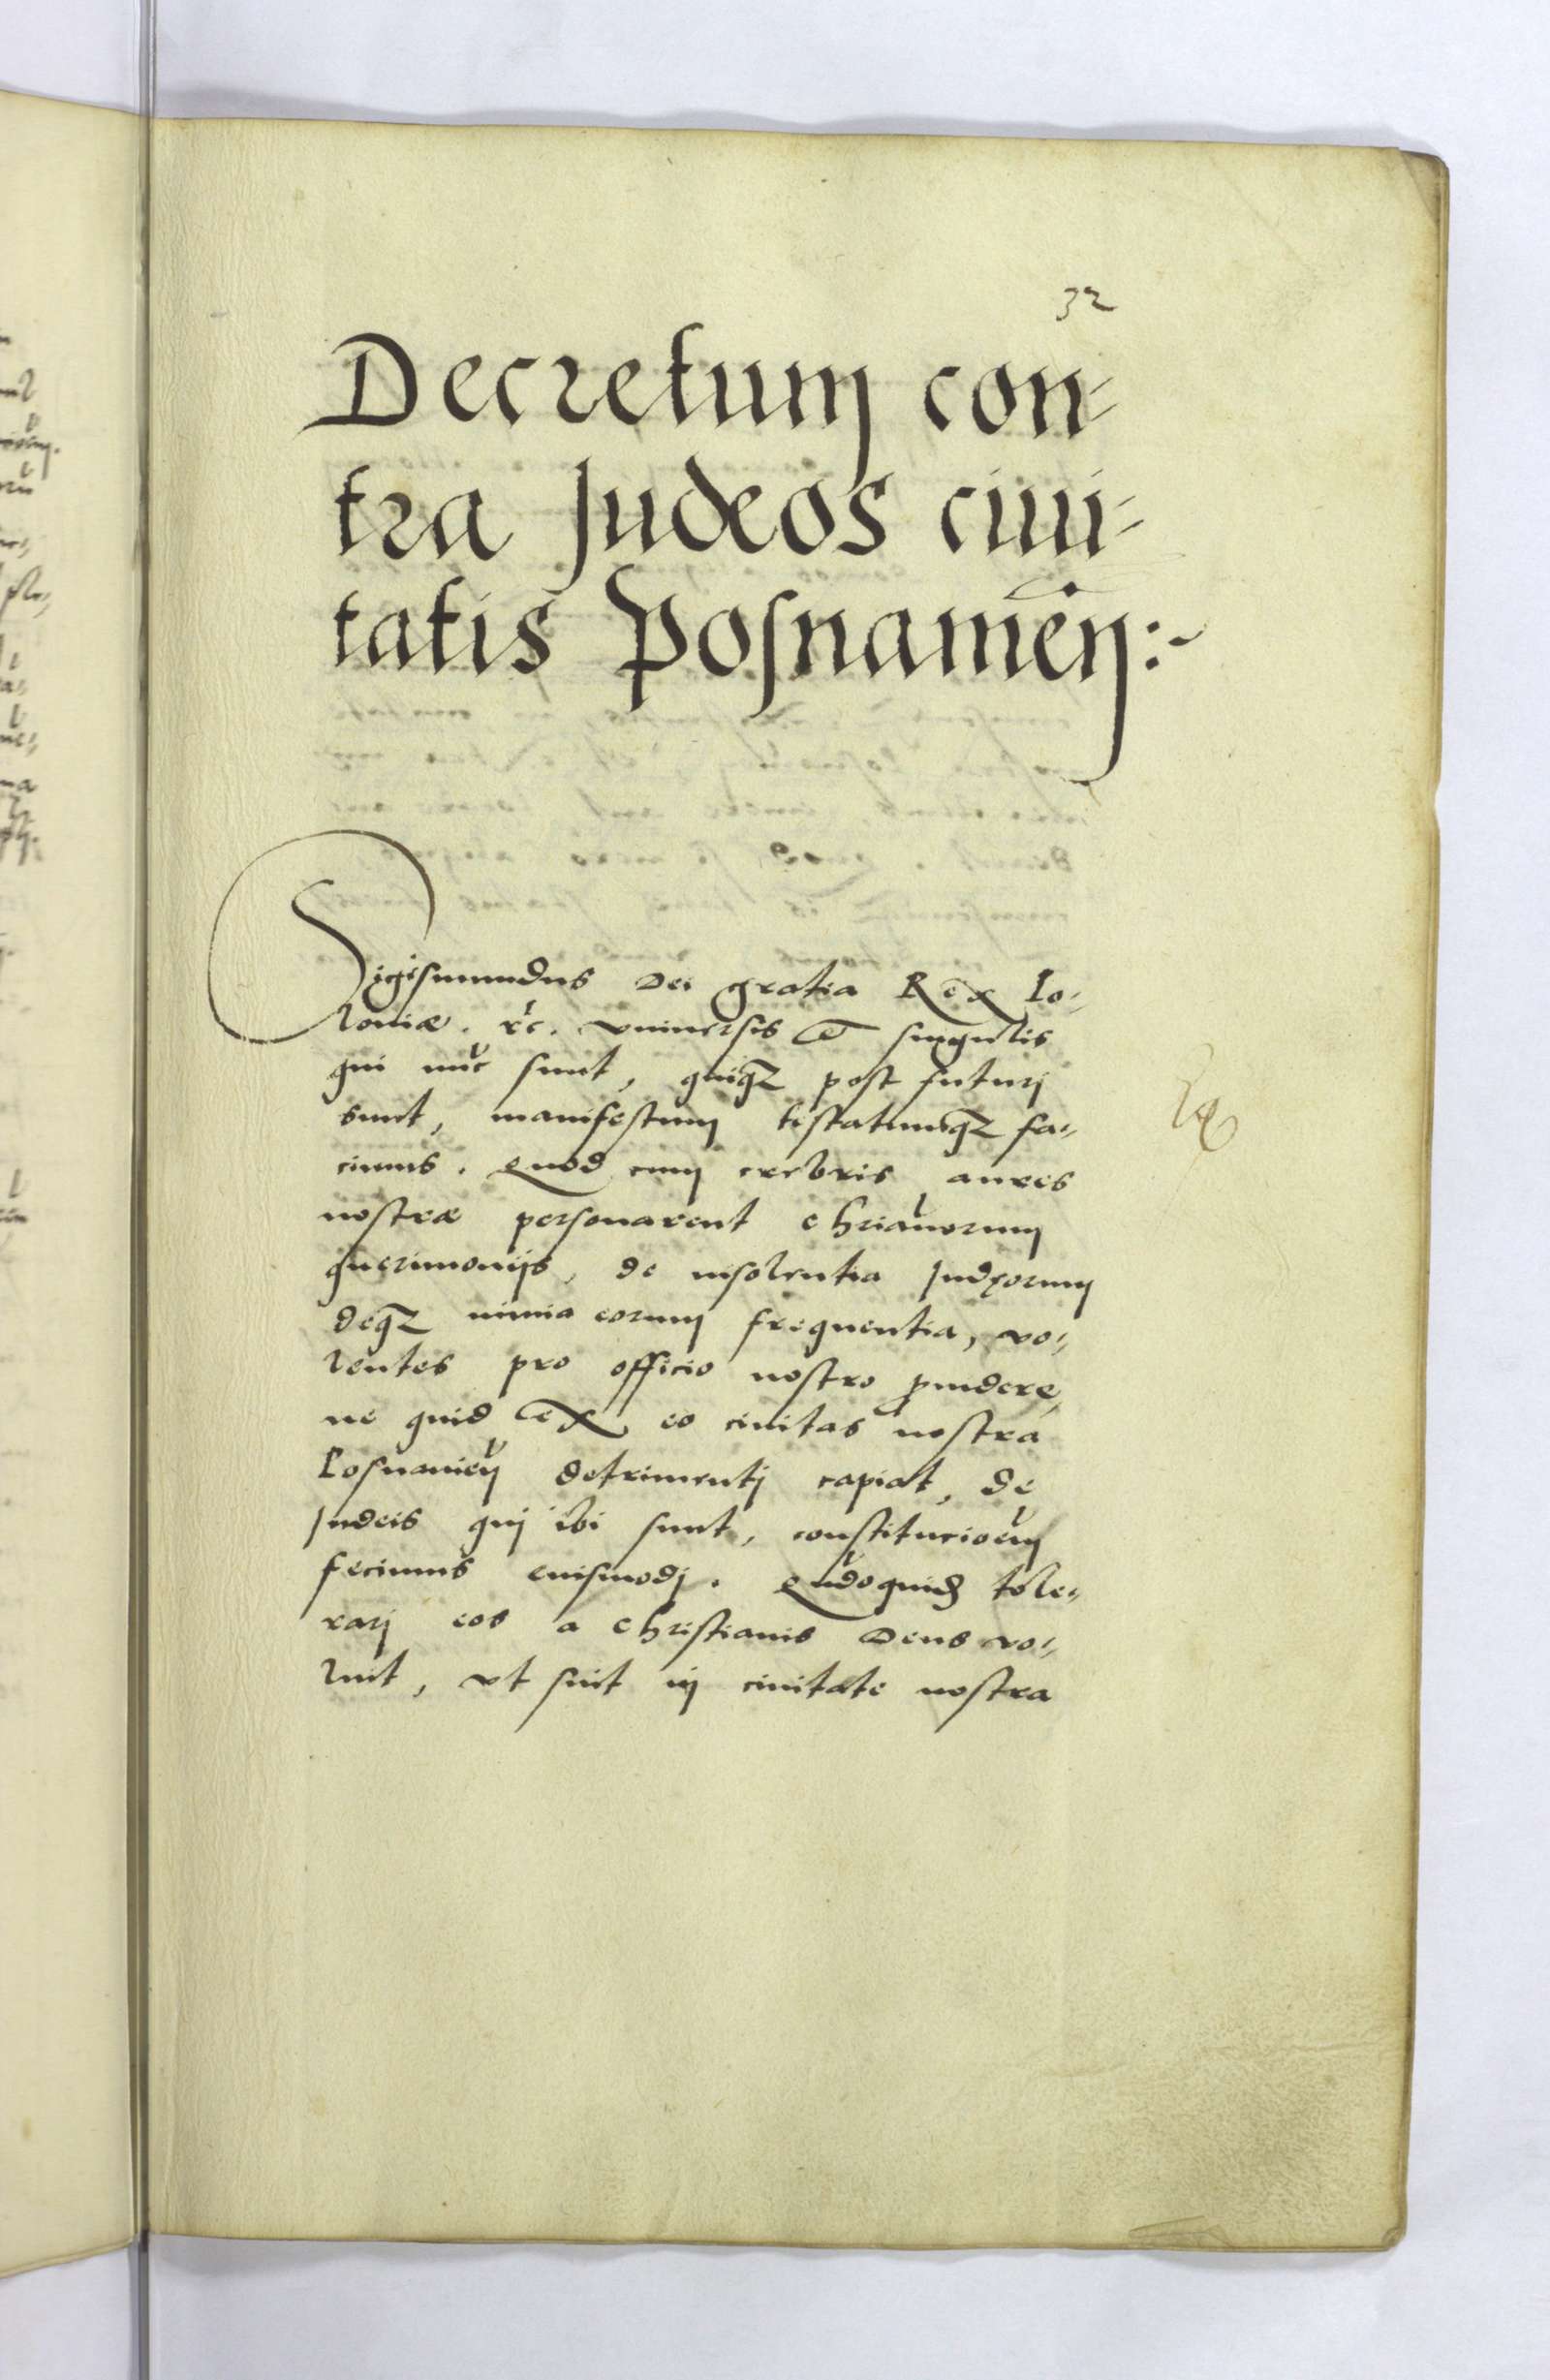 32
Decretum con-
tra Judeos ciui-
tatis Posnanień:~
Sigismundus Dei gratia Rex Po-
loniæ. &c. vniuersis et singulis
qui nuc sunt, quiqz post futuri
sunt, manifestum testatumqz fa-
cimus. Quod cum crebris aures
nostræ personarent chrianorum
querimonijs, de insolentia Judęorum
deqz nimia eorum frequentia, vo-
lentes pro officio nostro puidere,
ne quid ex eo ciuitas nostra
Posnanień detrimentj capiat, de
Judeis quj ibi sunt, constitucioem
fecimus euismodj. Qudoquid tole-
rarj eos a christianis Deus vo-
luit, vt sint in ciuitate nostra